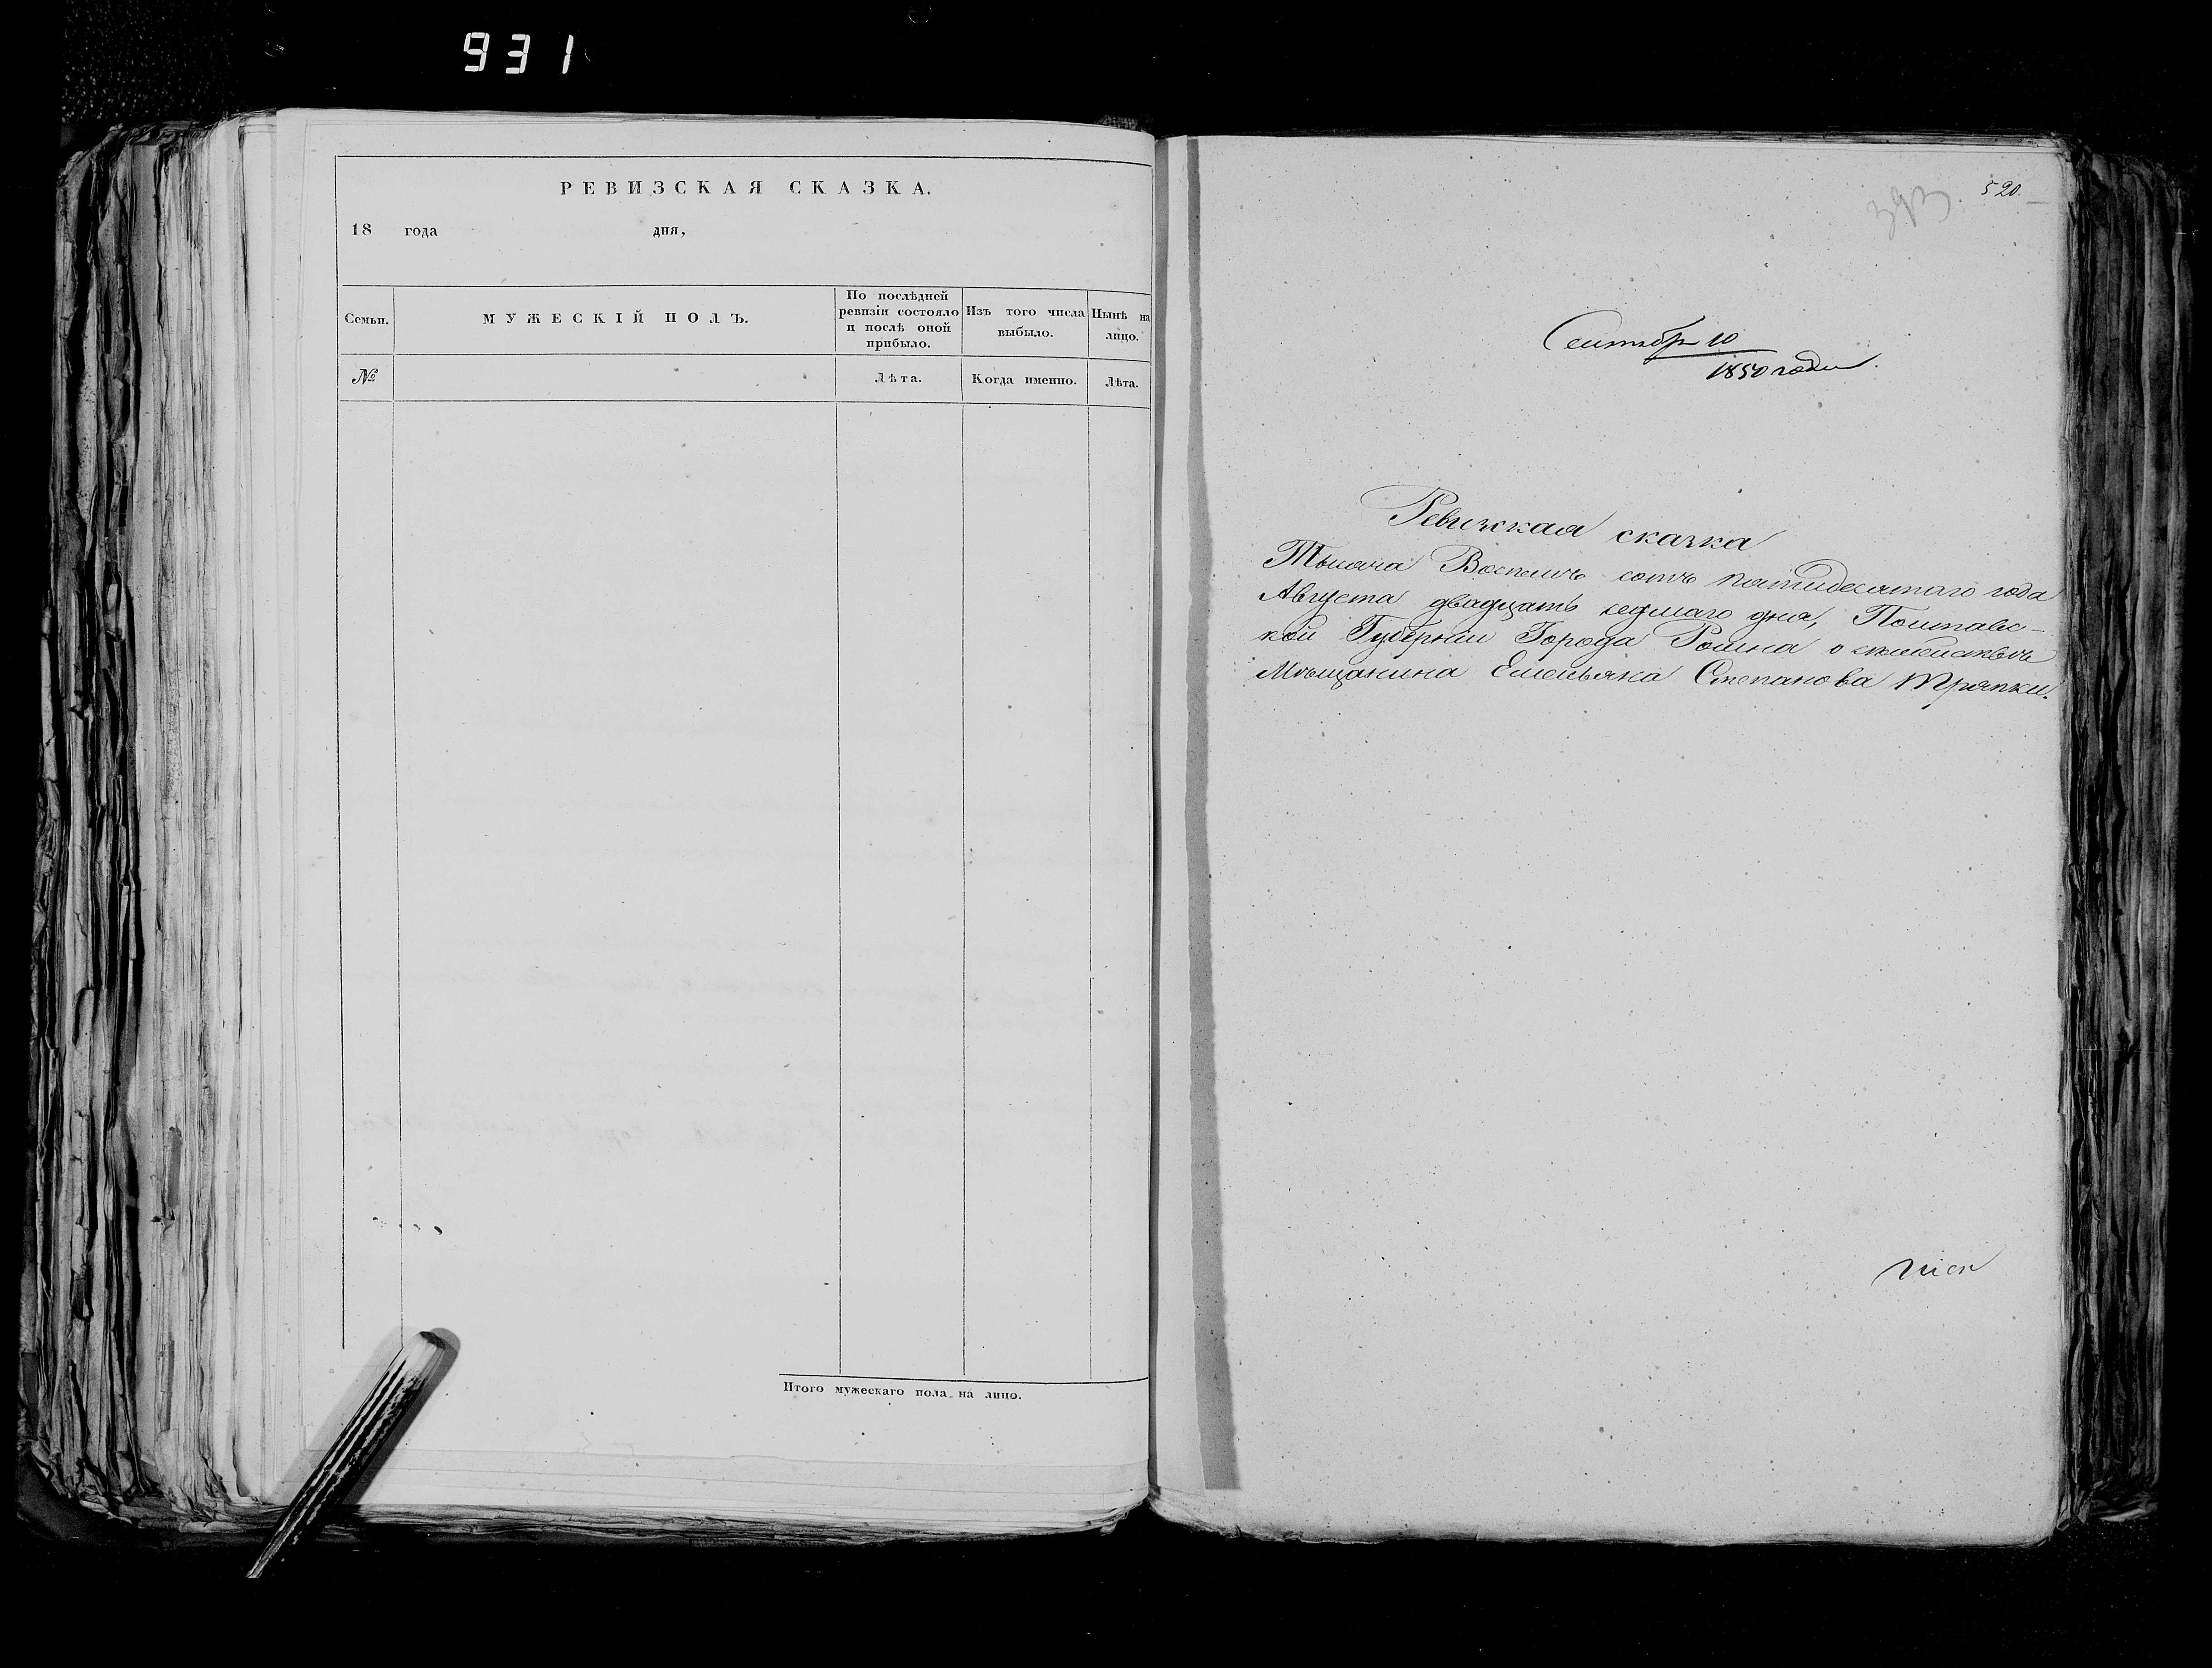 931
РЕВИЗСКАЯ СКАЗКА.
18 года дня,
Семьи.
МУЖЕСКІЙ ПОЛЪ.
По послѣдней
ревизіи состояло
и послѣ оной
прибыло.
Изъ того числа
выбыло.
Нынѣ на
лицо.
№
Лѣта.
Когда именно.
Лѣта.
Итого мужескаго пола на лицо.
520.
393
Сентябр 10
1850 года.
Ревизская сказка
Тысяча Восемь сотъ пятидесятаго года
Августа двадцать седмаго дня, Полтавс-
кой Губерніи Города Ромна о семействѣ
Мѣщанина Емельяна Степанова Тряпки.